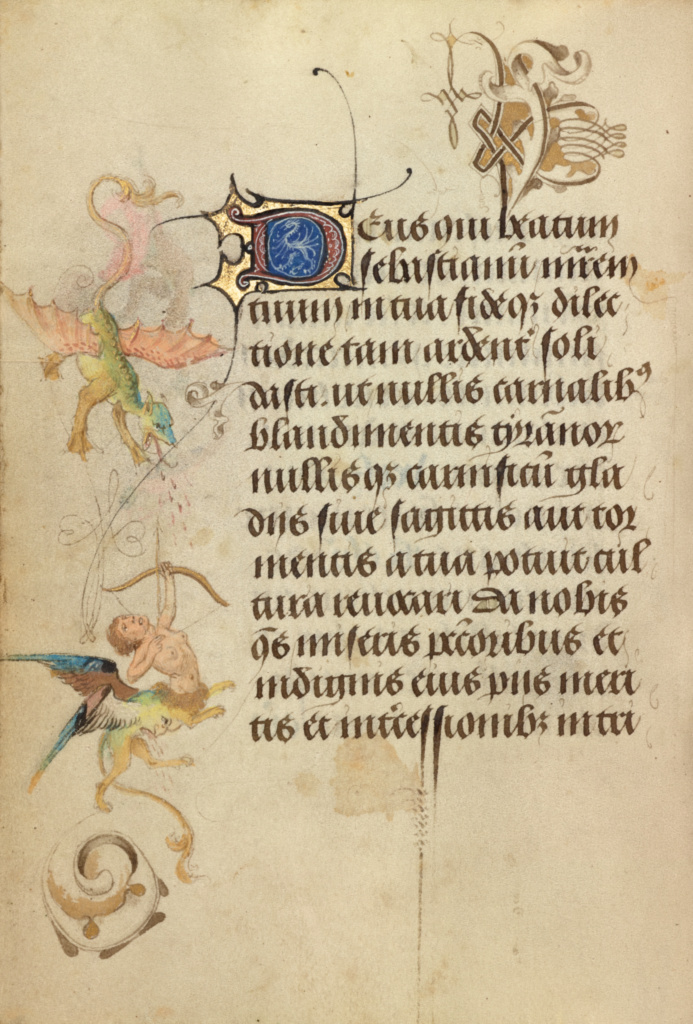 Deus qui beatum
sebastianū mr̄em
tuum in tua fideqꝫ dilec
tione tam ardent̾ soli
dasti. ut nullis carnalibꝰ
blandimentis tÿrānoꝝ
nullisqꝫ carnificū gla
dijs siue sagittis aut tor
mentis a tua potuit cul
tura reuocari Da nobis
q̄s miseris pc̄coribus et
indignis eius pijs meri
tis et int̾cessionibꝫ in tri